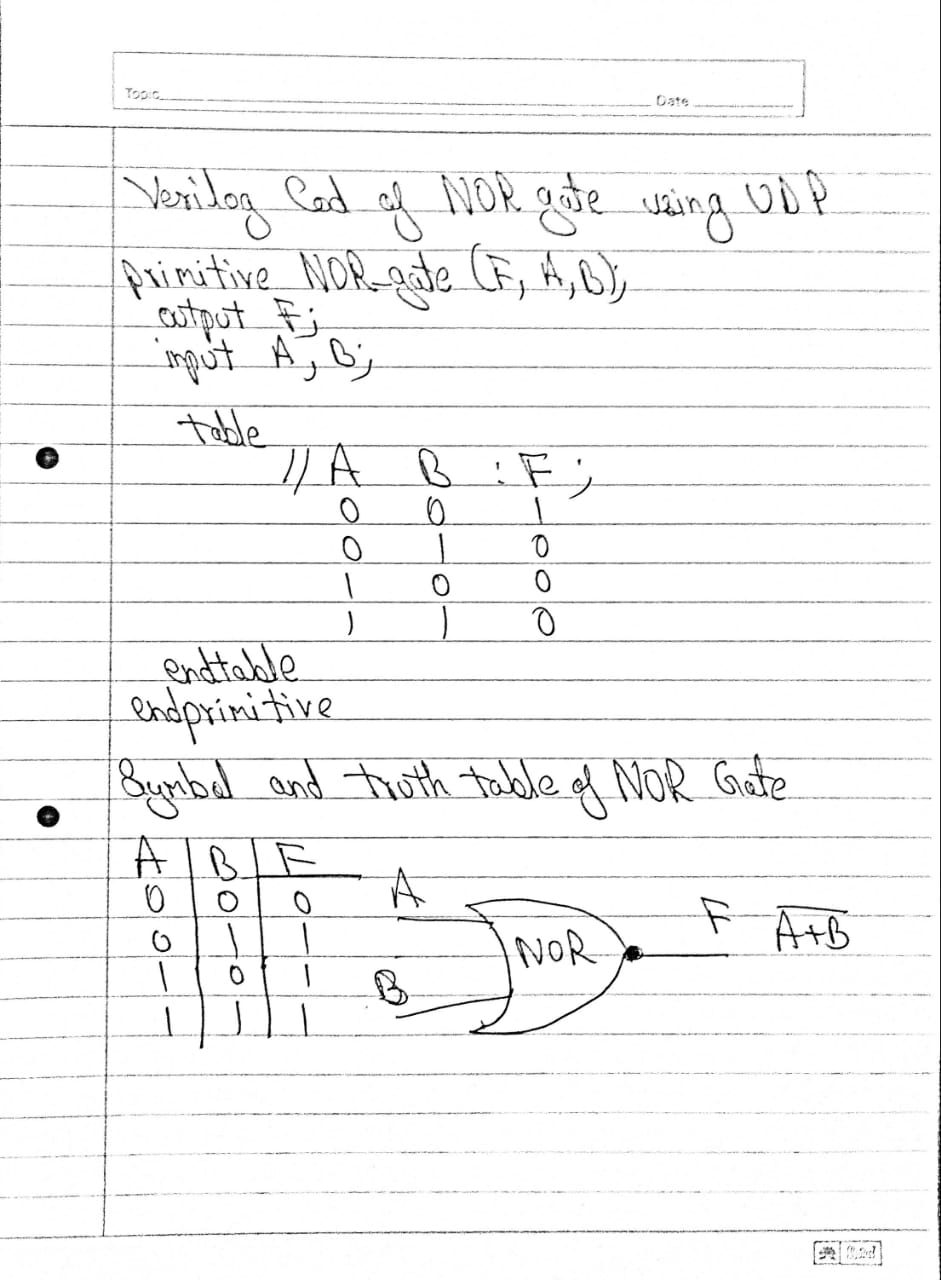 Topic Date
Verilog Cod of NOR gate using UDP
primitive NOR-gate (F, A, B);
output F;
input A, B;
table
// A B : F ;
0 0 1
0 1 0
1 0 0
1 1 0
endtable
endprimitive
Symbol and truth table of NOR Gate
A B F
0 0 0
0 1 1
1 0 1
1 1 1
A
B
NOR
F A̅+̅B̅